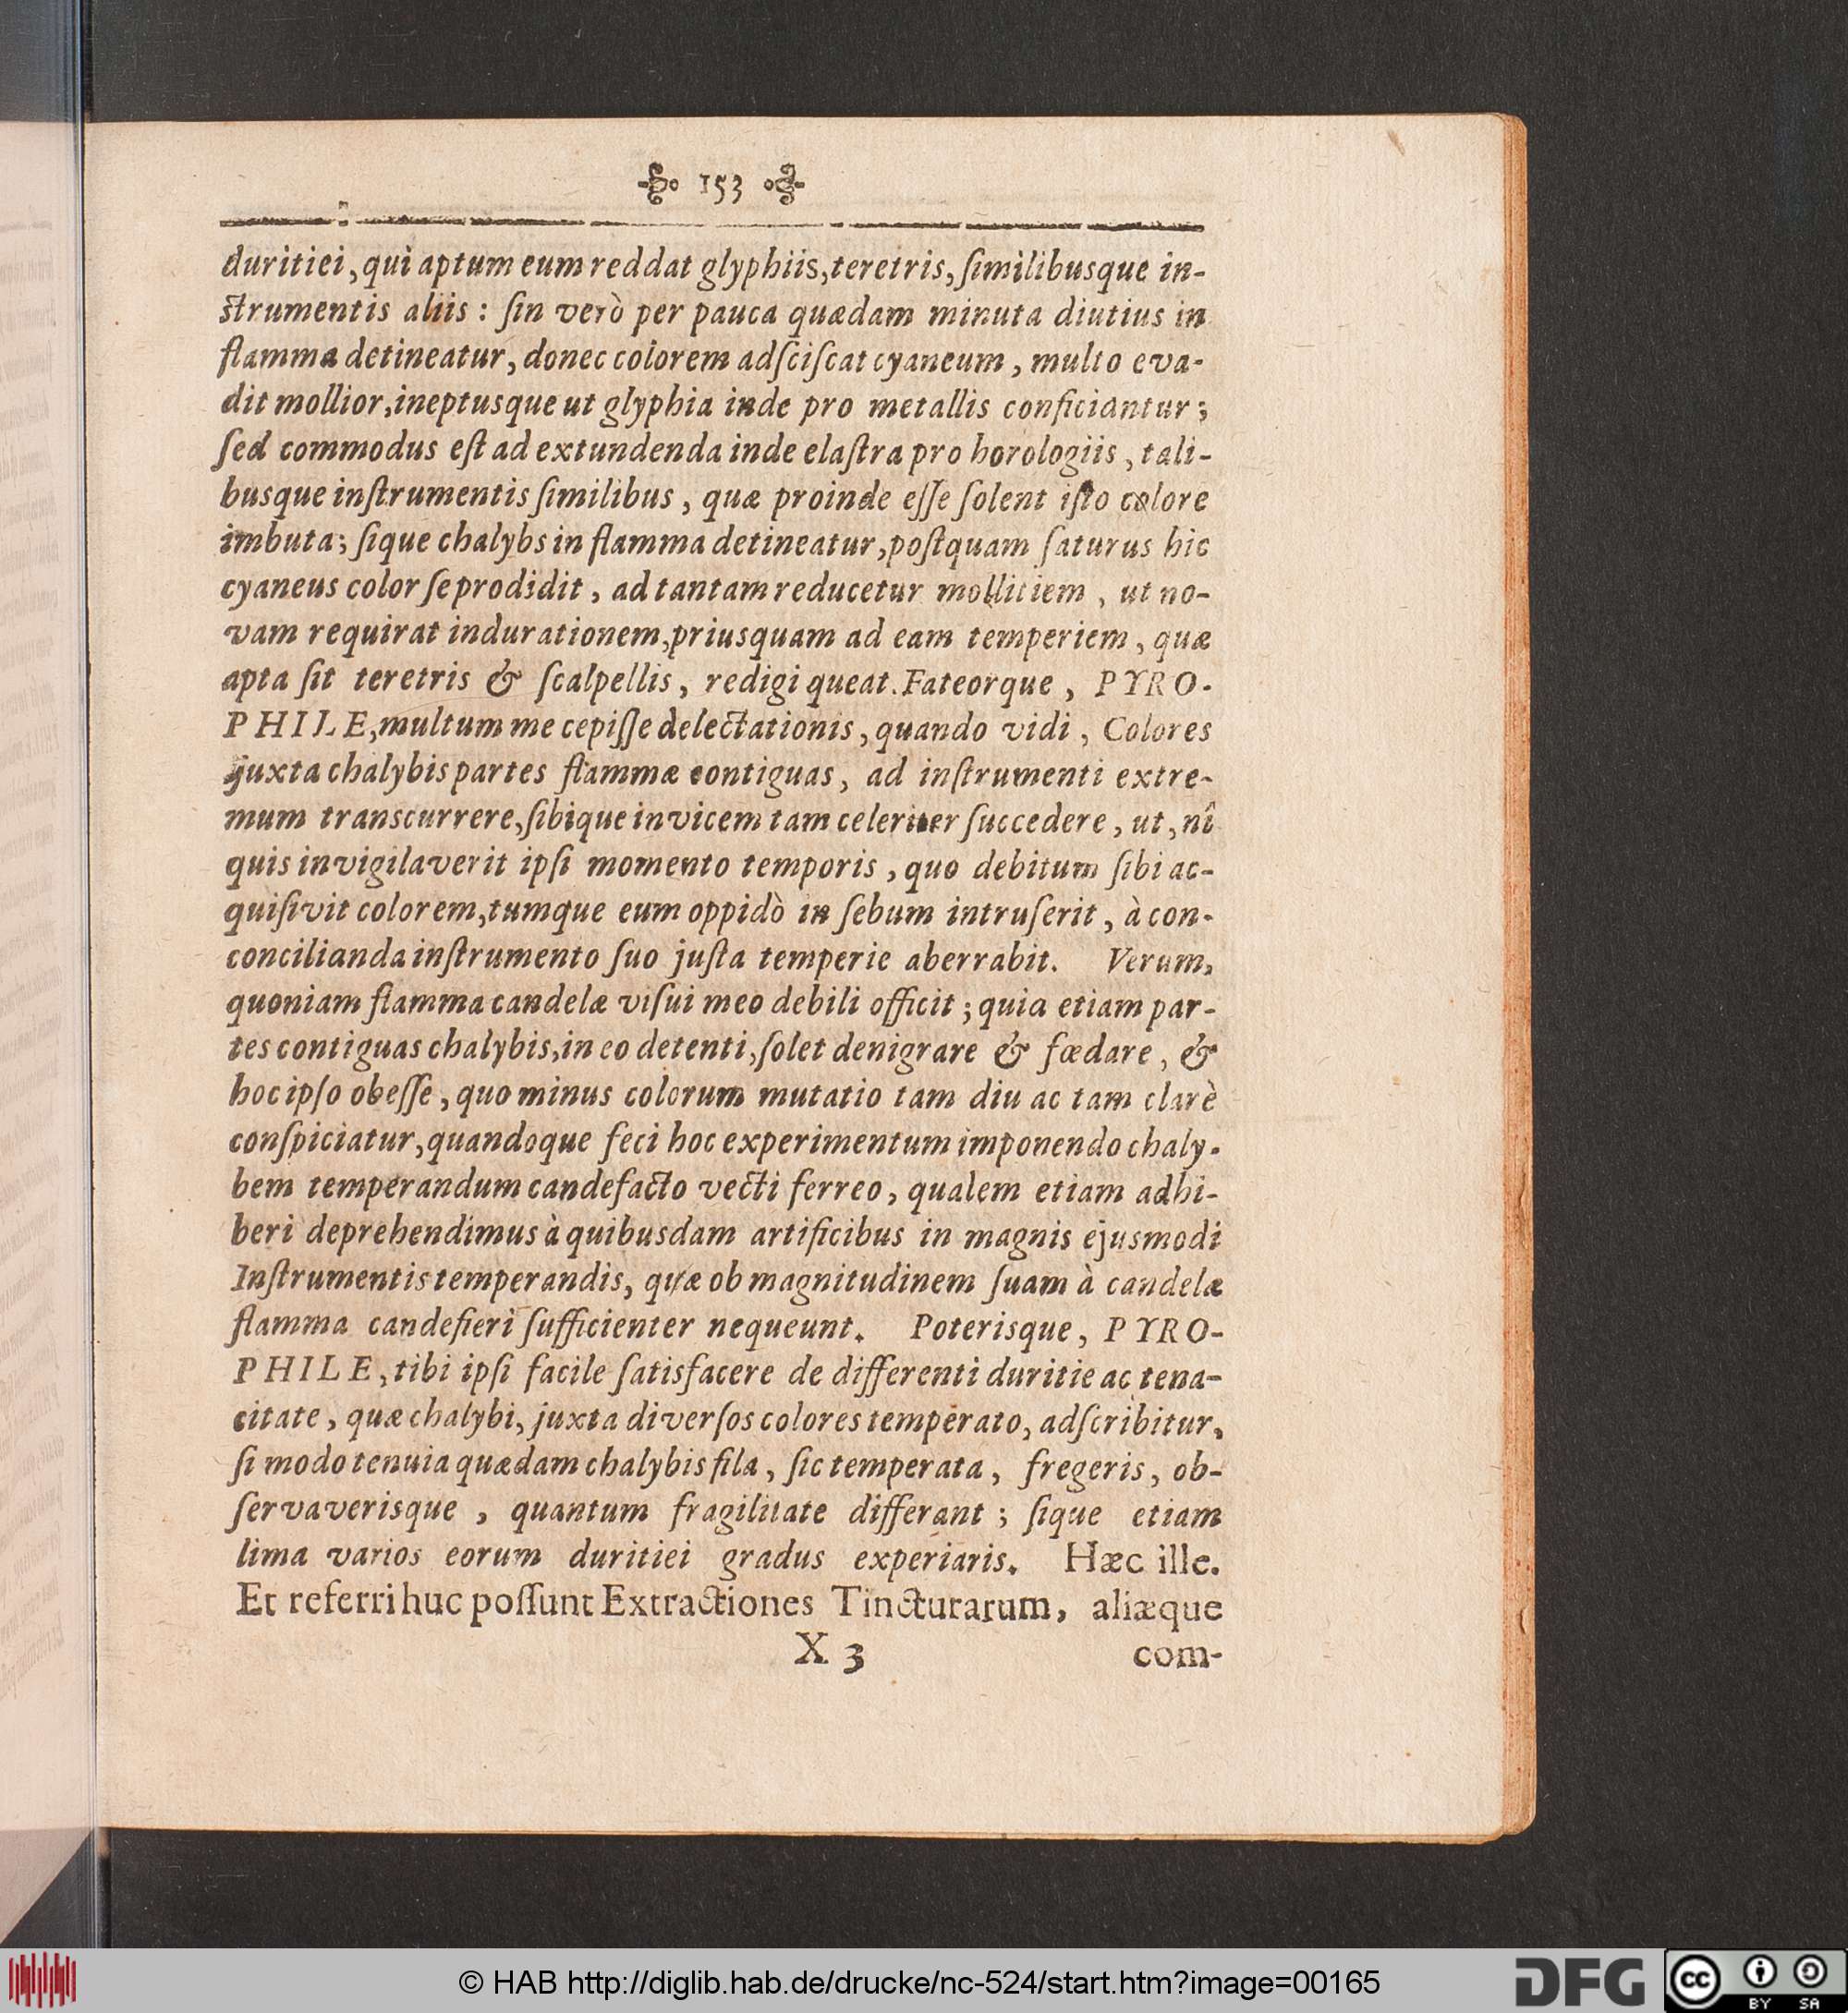 153
duritiei, quì aptum eum reddat glyphiis, teretris, ſimilibusque in-
ſtrumentis aliis : ſin verò per pauca quædam minuta diutius in
flamma detineatur, donec colorem adſciſcat cyaneum, multo eva-
dit mollior, ineptusque ut glyphia inde pro metallis conficiantur;
ſed commodus eſt ad extundenda inde elaſtra pro horologiis, tali-
busque inſtrumentis ſimilibus, quæ proinde eſſe ſolent iſto colore
imbuta; ſique chalybs in flamma detineatur, poſtquam ſaturus hic
cyaneus color ſe prodidit, ad tantam reducetur mollitiem, ut no-
vam requirat indurationem, priusquam ad eam temperiem, quæ
apta ſit teretris & ſcalpellis, redigi queat. Fateorque, PYRO-
PHILE, multum me cepiſſe delectationis, quando vidi, Colores
juxta chalybis partes flammæ contiguas, ad inſtrumenti extre-
mum transcurrere, ſibique invicem tam celeriter ſuccedere, ut, nî
quis invigilaverit ipſi momento temporis, quo debitum ſibi ac-
quiſivit colorem, tumque eum oppidò in ſebum intruſerit, à con-
concilianda inſtrumento ſuo juſta temperie aberrabit. Verum,
quoniam flamma candelæ viſui meo debili officit; quia etiam par-
tes contiguas chalybis, in eo detenti, ſolet denigrare & fœdare, &
hoc ipſo obeſſe, quo minus colorum mutatio tam diu ac tam clarè
conſpiciatur, quandoque feci hoc experimentum imponendo chaly-
bem temperandum candefacto vecti ferreo, qualem etiam adhi-
beri deprehendimus à quibusdam artificibus in magnis ejusmodi
Inſtrumentis temperandis, quæ ob magnitudinem ſuam à candelæ
flamma candefieri ſufficienter nequeunt. Poterisque, PYRO-
PHILE, tibi ipſi facile ſatisfacere de differenti duritie ac tena-
citate, quæ chalybi, juxta diverſos colores temperato, adſcribitur,
ſi modo tenuia quædam chalybis fila, ſic temperata, fregeris, ob-
ſervaverisque, quantum fragilitate differant ; ſique etiam
lima varios eorum duritiei gradus experiaris. Hæc ille.
Et referri huc poſſunt Extractiones Tincturarum, aliæque
X 3 com-
© HAB http://diglib.hab.de/drucke/nc-524/start.htm?image=00165
DFG
cc BY SA